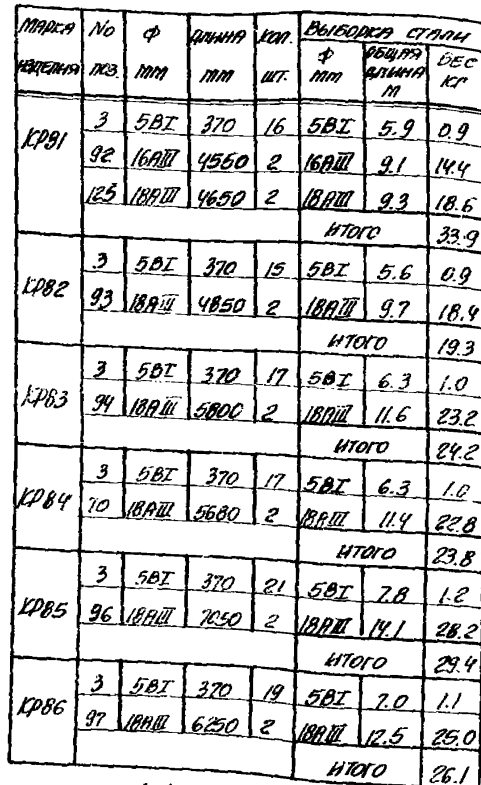 МАРКА ИЗДЕЛИЯ № ПОЗ. Ф ММ ДЛИНА ММ КОЛ. ШТ. ВЫБОРКА СТАЛИ
Ф ММ ОБЩАЯ ДЛИНА М ВЕС КГ
КР81 3 5ВI 370 16 5ВI 5.9 0.9
92 16АIII 4560 2 16АIII 9.1 14.4
125 18АIII 4650 2 18АIII 9.3 18.6
ИТОГО 33.9
КР82 3 5ВI 370 15 5ВI 5.6 0.9
93 18АIII 4850 2 18АIII 9.7 18.4
ИТОГО 19.3
КР83 3 5ВI 370 17 5ВI 6.3 1.0
94 18АIII 5800 2 18АIII 11.6 23.2
ИТОГО 24.2
КР84 3 5ВI 370 17 5ВI 6.3 1.0
70 18АIII 5680 2 18АIII 11.4 22.8
ИТОГО 23.8
КР85 3 5ВI 370 21 5ВI 7.8 1.2
96 18АIII 7050 2 18АIII 14.1 28.2
ИТОГО 29.4
КР86 3 5ВI 370 19 5ВI 7.0 1.1
97 18АIII 6250 2 18АIII 12.5 25.0
ИТОГО 26.1